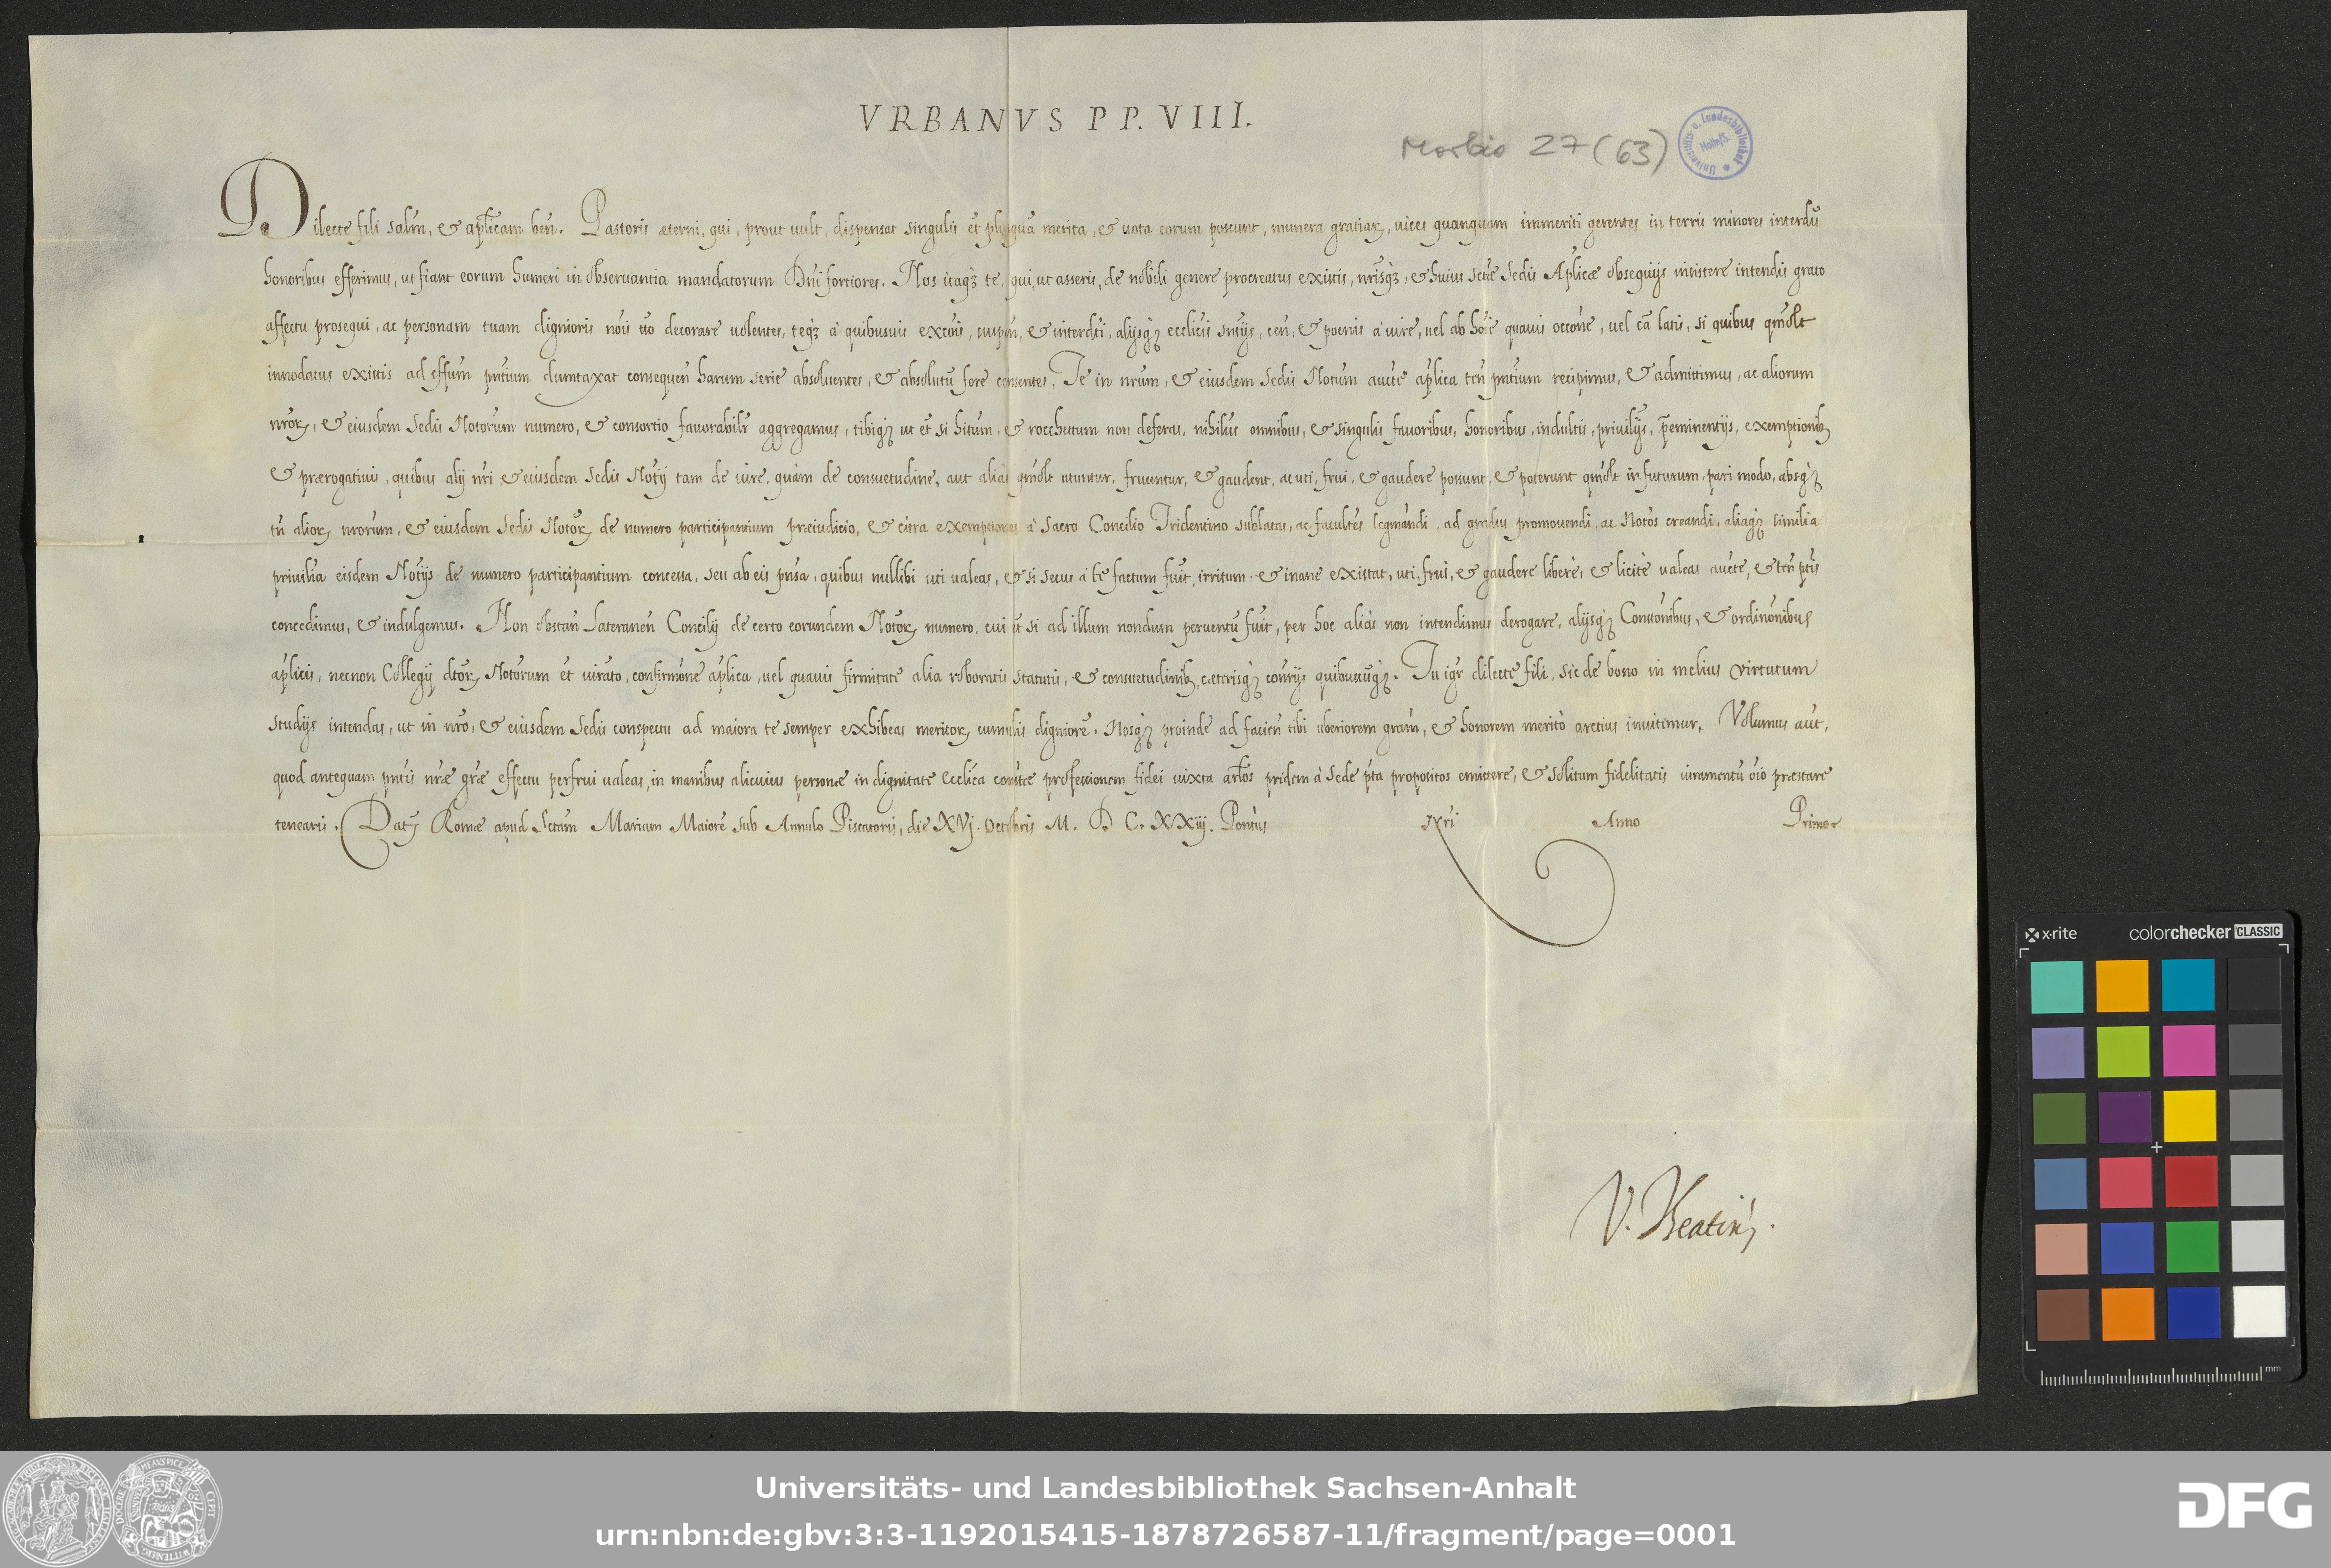 VRBANVS PP. VIII.
Morbio 27 (63)
Universitäts- u. Landesbibliothek Halle/S.
Dilecte fili salm̃, & ap̃licam ben̄. Pastoris æterni, qui, prout vult, dispensat singulis et̃ plusquã merita, & vota eorum poscunt, munera gratiaꝝ, vices quanquam immeriti gerentes in terris minores interdũ
honoribus efferimus, ut fiant eorum humeri in observantia mandatorum Dñi fortiores. Nos itaqꝫ te, qui, ut asseris, de nobili genere procreatus existis, nr̃isqꝫ, & huius sctæ Sedis Aplicæ obsequijs insistere intendis grato
affectu prosequi, ac personam tuam dignioris nõis tõ decorare volentes, teqꝫ à quibusvis excõis, suspen̄, & interdicti, alijsqꝫ ecclicis sñtijs, cen̄, & poenis à iure, vel ab hoĩe quavis occõne, vel cã latis, si quibus qm̃olt
innodatus existis ad effum̃ pñtium dumtaxat consequen̄ harum serie absolventes, & absolutũ fore censentes, Te in nrum, & eiusdem Sedis Notum aucte ap̃lica ten̄ pñtium recipimus, & admittimus, ac aliorum
nroꝝ, & eiusdem Sedis Notorum numero, & consortio favorabilr̃ aggregamus, tibiqꝫ ut et̃ si hitum, & rocchetum non deferas, nihilus omnibus, & singulis favoribus, honoribus, indultis, privilijs, p̃eminentijs, exemptionibꝫ
& prærogativis, quibus alij nr̃i & eiusdem Sedis Notij tam de iure, quàm de consuetudine, aut aliàs qm̃olt utuntur, fruuntur, & gaudent, ac uti, frui, & gaudere possunt, & poterunt qm̃olt in futurum, pari modo, absqꝫ
tñ alioꝝ nrorum, & eiusdem Sedis Notoꝝ de numero participantium præiudicio, & citra exemptiones à Sacro Concilio Tridentino sublatas, ac facultes legitmandi, ad gradus promovendi, ac Notos creandi, aliaqꝫ similia
privilia eisdem Notijs de numero participantium concessa, seu ab eis pñsa, quibus nullibi uti valeas, & si secus à te factum fuit, irritum, & inane existat, uti, frui, & gaudere liberè, & licitè valeas aucte, & ten̄ ptis
concedimus, & indulgemus. Non obstan̄ Lateranen̄ Concilij de certo eorundem Notoꝝ numero, cui et̃ si ad illum nondum perventũ fuit, per hoc aliàs non intendimus derogare, alijsqꝫ Constõnibus, & ordinõnibus
aplicis, necnon Collegij dtoꝝ Notorum et̃ iurato, confirmõne aplica, vel quavis firmitate alia roboratis statutis, & consuetudinibꝫ, cæterisqꝫ contrijs quibuscuqꝫ. Tu igr̃ dilecte fili, sic de bono in melius virtutum
studijs intendas, ut in nrõ, & eiusdem Sedis conspectu ad maiora te semper exhibeas meritoꝝ cumulis digniorẽ, Nosqꝫ proinde ad facien̄ tibi uberiorem gram̃, & honorem meritò arctius invitimur. Volumus aut̃,
quod antequam pñtis nræ græ effectu perfrui valeas, in manibus alicuius personæ in dignitate ecclica contæ professionem fidei iuxta artlos pridem à Sede p̃ta propositos emittere, & solitum fidelitatis iuramentũ oĩo præstare
tenearis. Datꝫ Romæ apud Sctam Mariam Maiorẽ sub Annulo Piscatoris, die XVj. Octobris M. D C. XXiij. Pontus nri Anno Primo
V. Theatinꝰ.
x·rite colorchecker CLASSIC
mm
Universitäts- und Landesbibliothek Sachsen-Anhalt
urn:nbn:de:gbv:3:3-1192015415-1878726587-11/fragment/page=0001
DFG